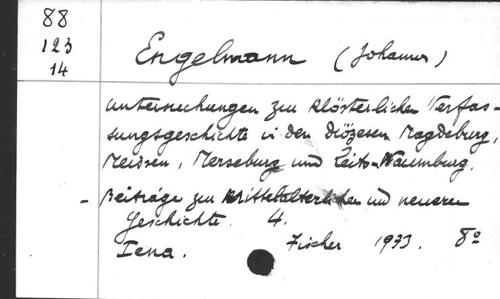 88
123
14
Engelmann (Johannes)
Untersuchungen zur klösterlichen Verfas-
sungsgeschichte in den Diözesen Magdeburg,
Meissen, Merseburg und Zeitz-Naumburg.
- Beiträge zur mittelalterlichen und neueren
Geschichte. 4.
Iena. Fischer 1933. 8º